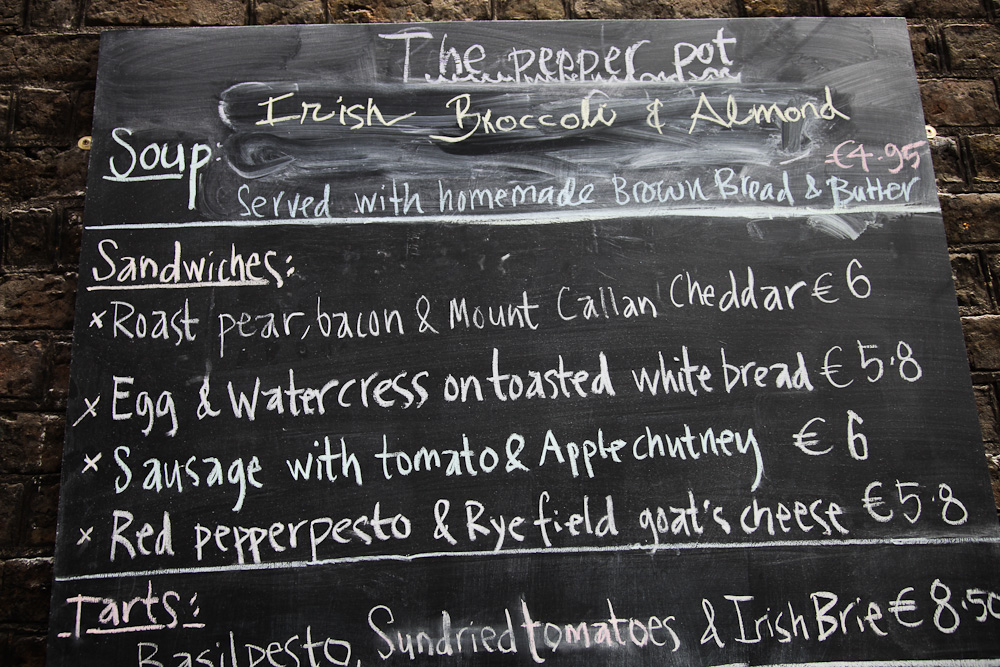 The pepper pot
Irish Broccoli & Almond
Soup: €4.95
Served with homemade Brown Bread & Butter
Sandwiches:
x Roast pear, bacon & Mount Callan Cheddar € 6
x Egg & Watercress on toasted white bread € 5.8
x Sausage with tomato & Apple chutney € 6
x Red pepper pesto & Rye field goat's cheese € 5.8
Tarts:
Basil pesto, Sundried tomatoes & Irish Brie € 8.50